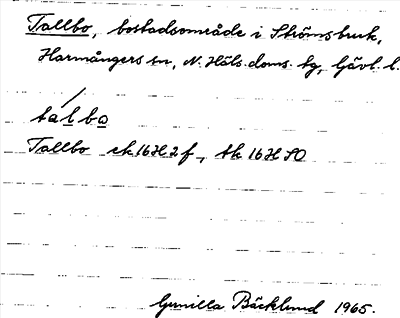 Tallbo, bostadsområde i Strömsbruk,
Harmångers sn, N. Häls. doms. tg, Gävl. l.
talbo
Tallbo ek 16H2f, tk 16H SO
Gunilla Bäcklund 1965.